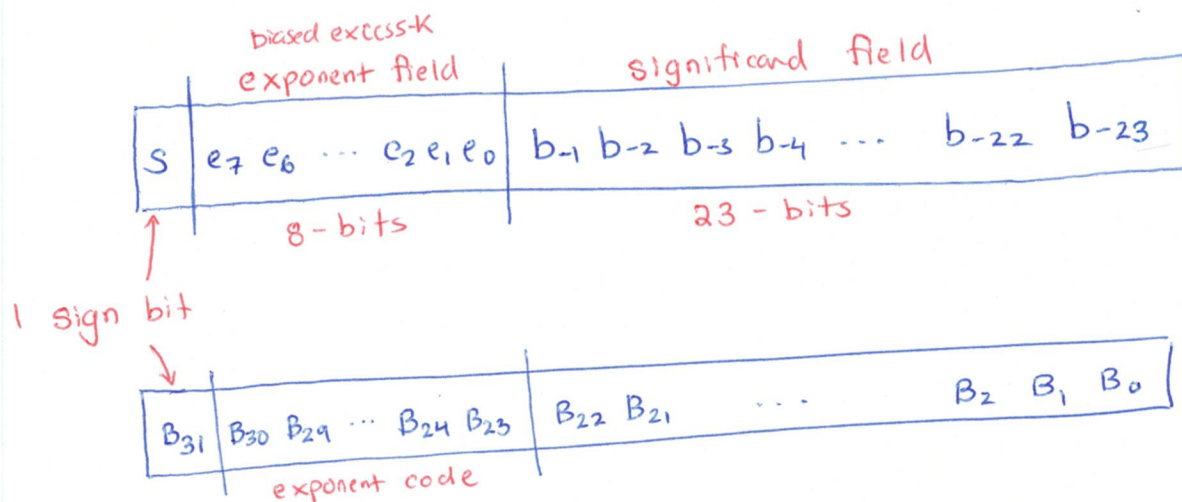 biased excess-K
exponent field
significand field
S e7 e6 ... e2 e1 e0 b-1 b-2 b-3 b-4 ... b-22 b-23
8-bits
23-bits
1 sign bit
B31 B30 B29 ... B24 B23 B22 B21 ... B2 B1 B0
exponent code